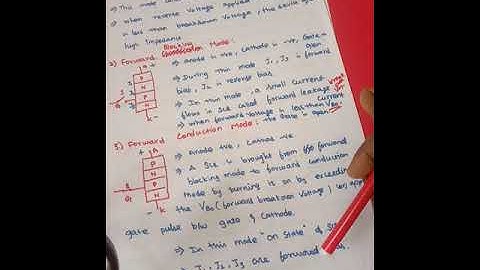 ⇒ This mode cond
⇒ When reverse voltage applied
is less than breakdown voltage, this device
high impedance
2) Forward Blocking Mode:
⇒ Anode is +ve, Cathode is -ve, Gate is open
⇒ During this mode J1, J3 is forward
bias, J2 is reverse bias.
⇒ In this mode, a small current
flows in SCR called forward leakage current
⇒ when forward voltage is less than VBO
3) Forward Conduction Mode:
⇒ Anode +ve, Cathode -ve
⇒ A SCR is brought from
blocking mode to forward conduction
mode by turning it on by exceeding
the VBO (forward breakdown voltage) (or) apply
gate pulse b/w gate & cathode.
⇒ In this mode "on state" of SCR
⇒ J1, J2, J3 are forward bias.
A
P
N
P
N
K
G
A
P
N
P
N
K